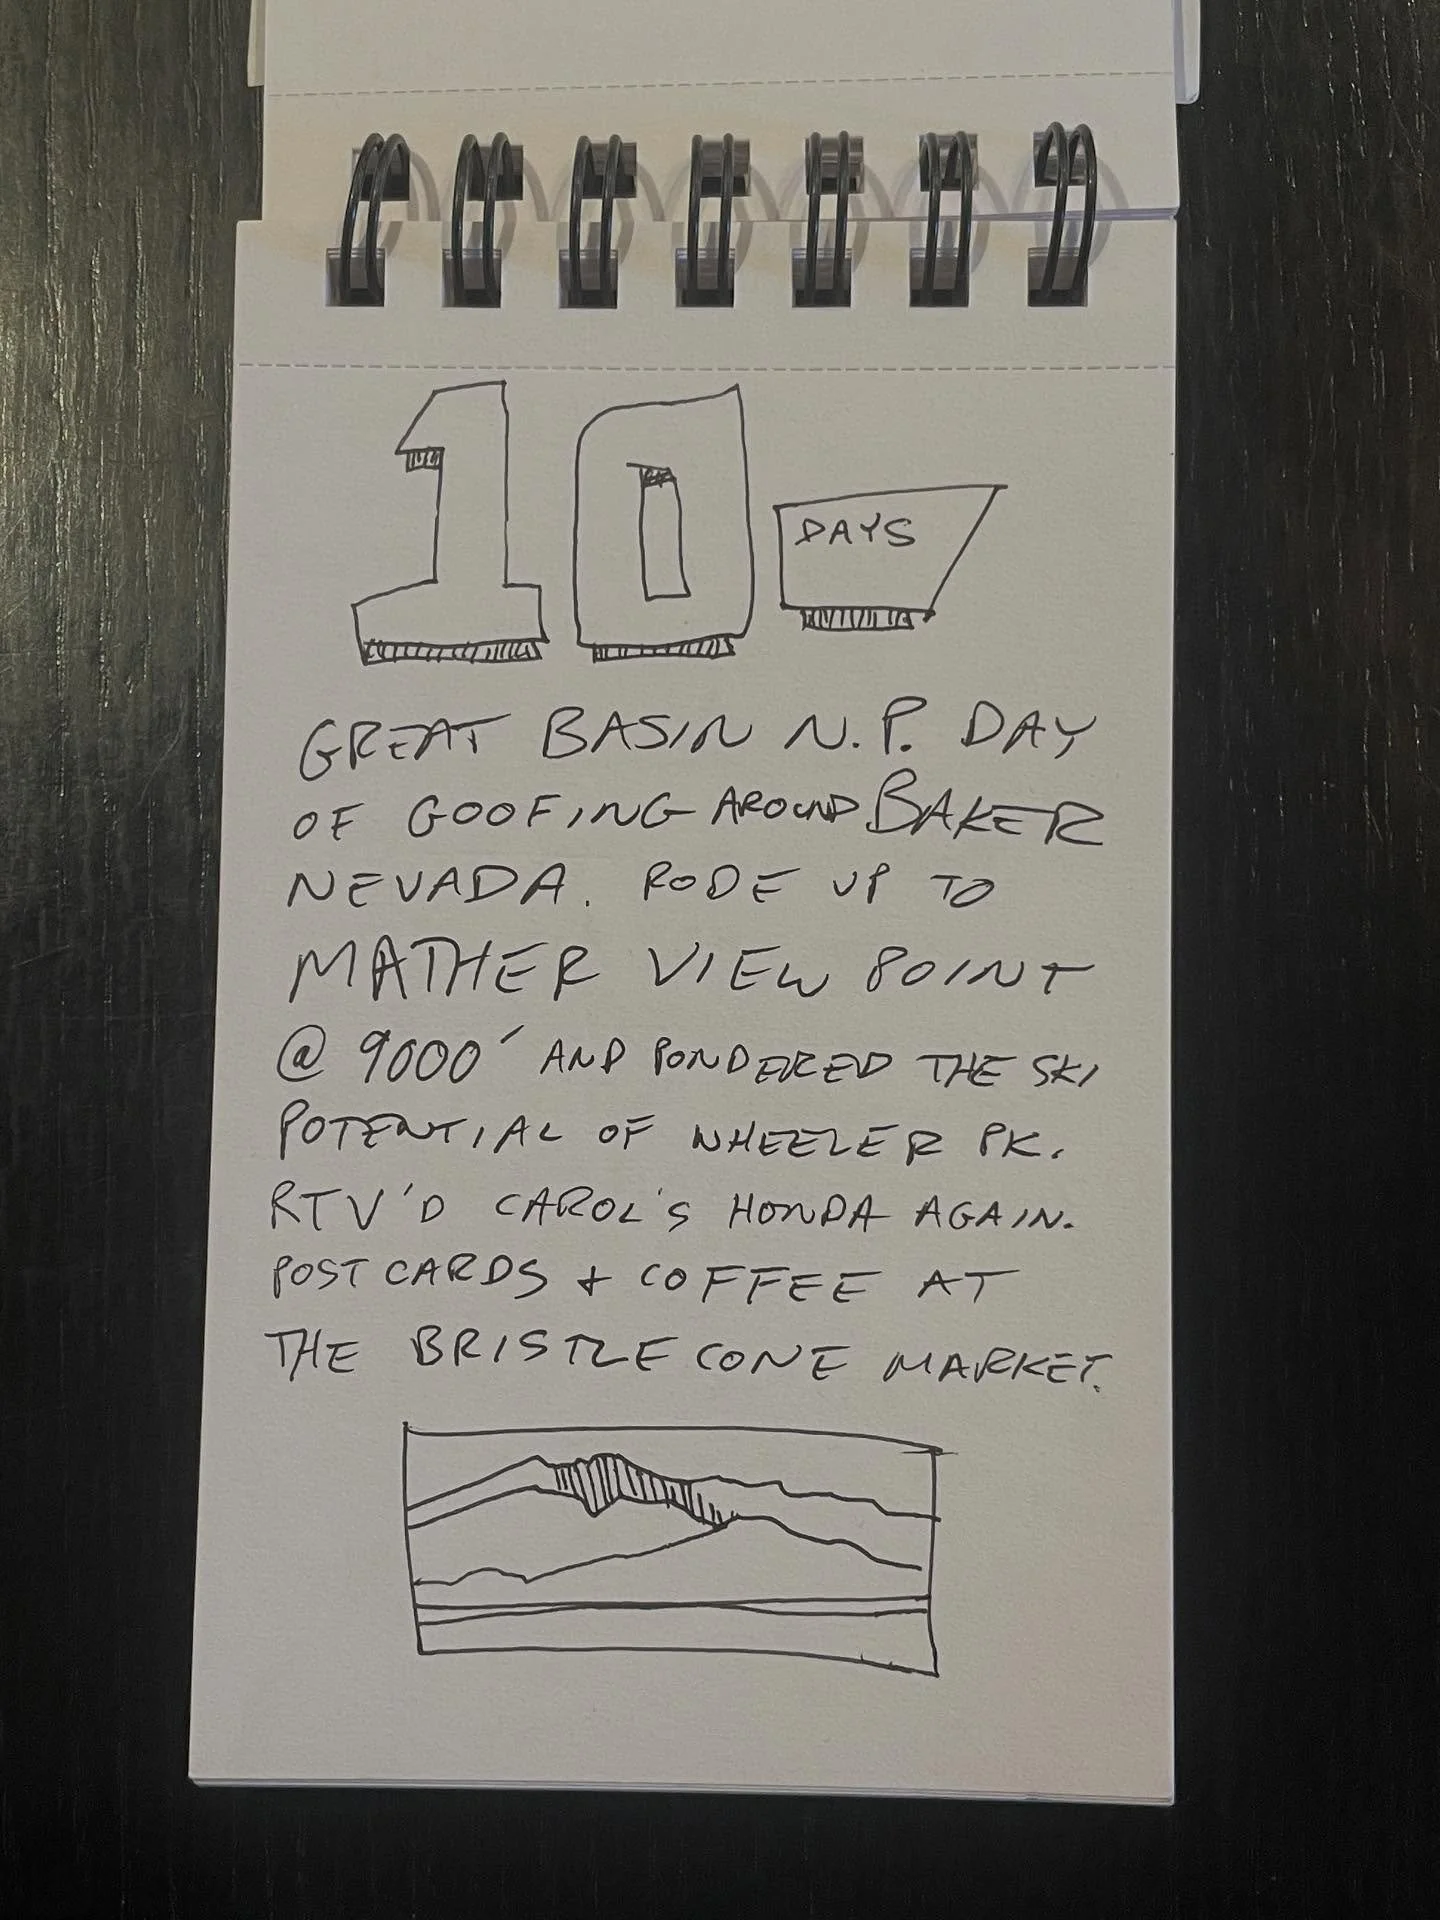 10 DAYS
GREAT BASIN N.P. DAY
OF GOOFING AROUND BAKER
NEVADA. RODE UP TO
MATHER VIEW POINT
@ 9000' AND PONDERED THE SKI
POTENTIAL OF WHEELER PK.
RTV'D CAROL'S HONDA AGAIN.
POST CARDS + COFFEE AT
THE BRISTLE CONE MARKET.